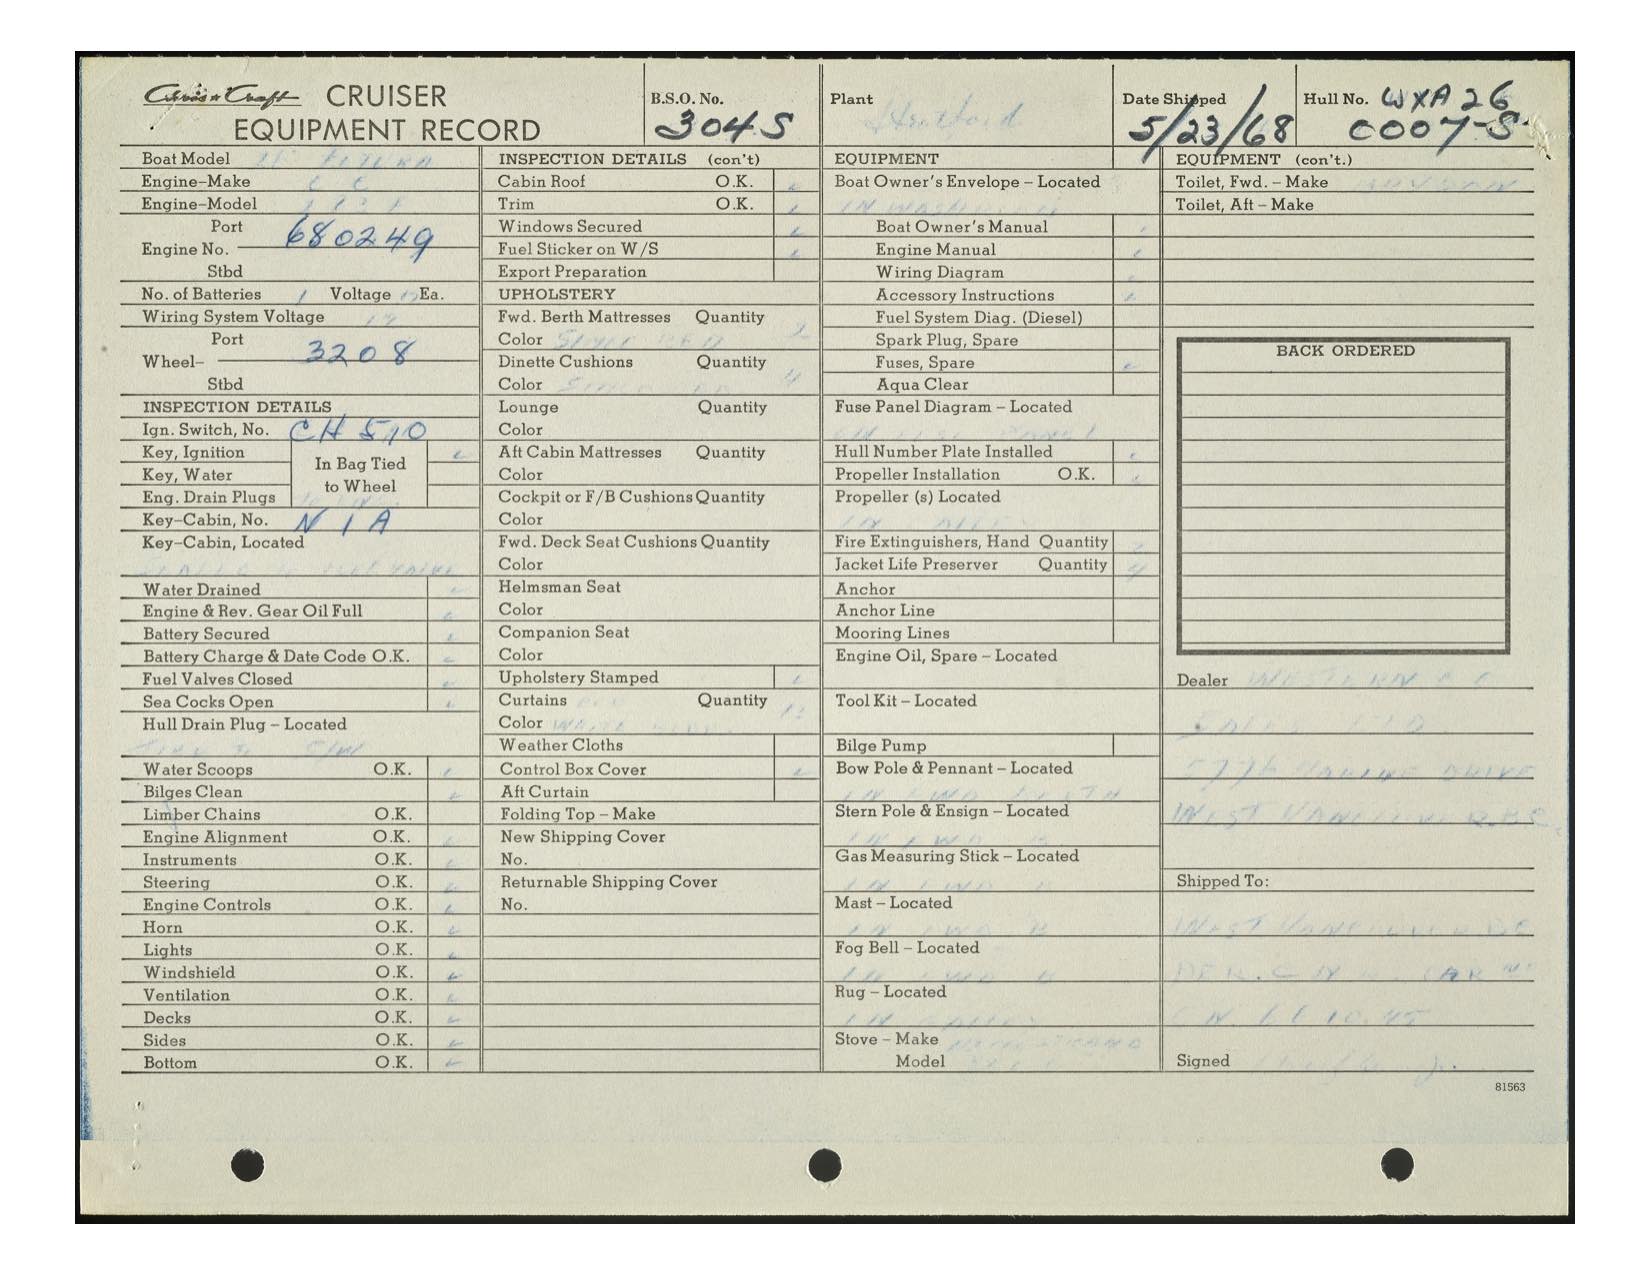 Chris Craft CRUISER
EQUIPMENT RECORD
B.S.O. No.
304S
Plant
Date Shipped
5/23/68
Hull No. WXA 26
0007-S
Boat Model
Engine-Make C C
Engine-Model
Port
Engine No. 680249
Stbd
No. of Batteries 1 Voltage Ea.
Wiring System Voltage
Port
Wheel- 3208
Stbd
INSPECTION DETAILS
Ign. Switch, No. CH 510
Key, Ignition
Key, Water
Eng. Drain Plugs
In Bag Tied
to Wheel
Key-Cabin, No. N/A
Key-Cabin, Located
Water Drained
Engine & Rev. Gear Oil Full
Battery Secured
Battery Charge & Date Code O.K.
Fuel Valves Closed
Sea Cocks Open
Hull Drain Plug - Located
Water Scoops O.K.
Bilges Clean
Limber Chains O.K.
Engine Alignment O.K.
Instruments O.K.
Steering O.K.
Engine Controls O.K.
Horn O.K.
Lights O.K.
Windshield O.K.
Ventilation O.K.
Decks O.K.
Sides O.K.
Bottom O.K.
INSPECTION DETAILS (con't)
Cabin Roof O.K.
Trim O.K.
Windows Secured
Fuel Sticker on W/S
Export Preparation
UPHOLSTERY
Fwd. Berth Mattresses Quantity 2
Color
Dinette Cushions Quantity 4
Color
Lounge Quantity
Color
Aft Cabin Mattresses Quantity
Color
Cockpit or F/B Cushions Quantity
Color
Fwd. Deck Seat Cushions Quantity
Color
Helmsman Seat
Color
Companion Seat
Color
Upholstery Stamped
Curtains Quantity
Color WHITE
Weather Cloths
Control Box Cover
Aft Curtain
Folding Top - Make
New Shipping Cover
No.
Returnable Shipping Cover
No.
EQUIPMENT
Boat Owner's Envelope - Located
IN
Boat Owner's Manual
Engine Manual
Wiring Diagram
Accessory Instructions
Fuel System Diag. (Diesel)
Spark Plug, Spare
Fuses, Spare
Aqua Clear
Fuse Panel Diagram - Located
Hull Number Plate Installed
Propeller Installation O.K.
Propeller (s) Located
IN
Fire Extinguishers, Hand Quantity
Jacket Life Preserver Quantity 4
Anchor
Anchor Line
Mooring Lines
Engine Oil, Spare - Located
Tool Kit - Located
Bilge Pump
Bow Pole & Pennant - Located
IN FWD BERTH
Stern Pole & Ensign - Located
IN FWD B
Gas Measuring Stick - Located
IN FWD B
Mast - Located
IN FWD B
Fog Bell - Located
IN FWD B
Rug - Located
IN GALLEY
Stove - Make
Model
EQUIPMENT (con't.)
Toilet, Fwd. - Make
Toilet, Aft - Make
BACK ORDERED
Dealer WESTERN C C
SALES LTD.
5776 MARINE DRIVE
WEST VANCOUVER B.C.
Shipped To:
WEST VANCOUVER BC
Signed
81563